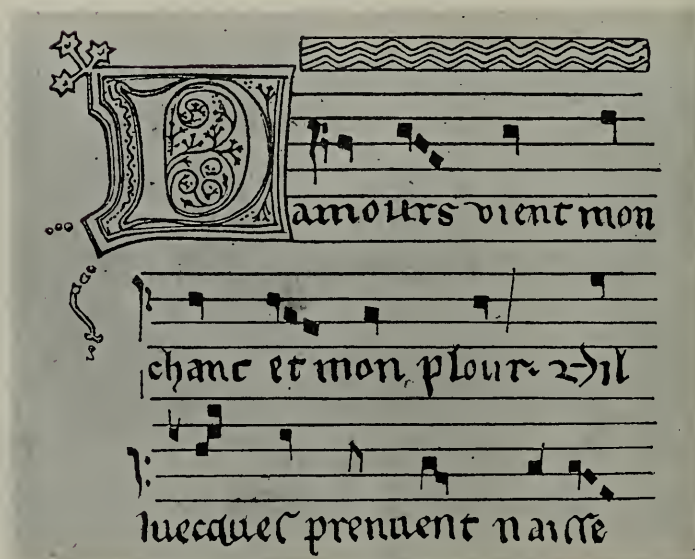 Damours vient mon
chant et mon plour
iluecques prennent naisse